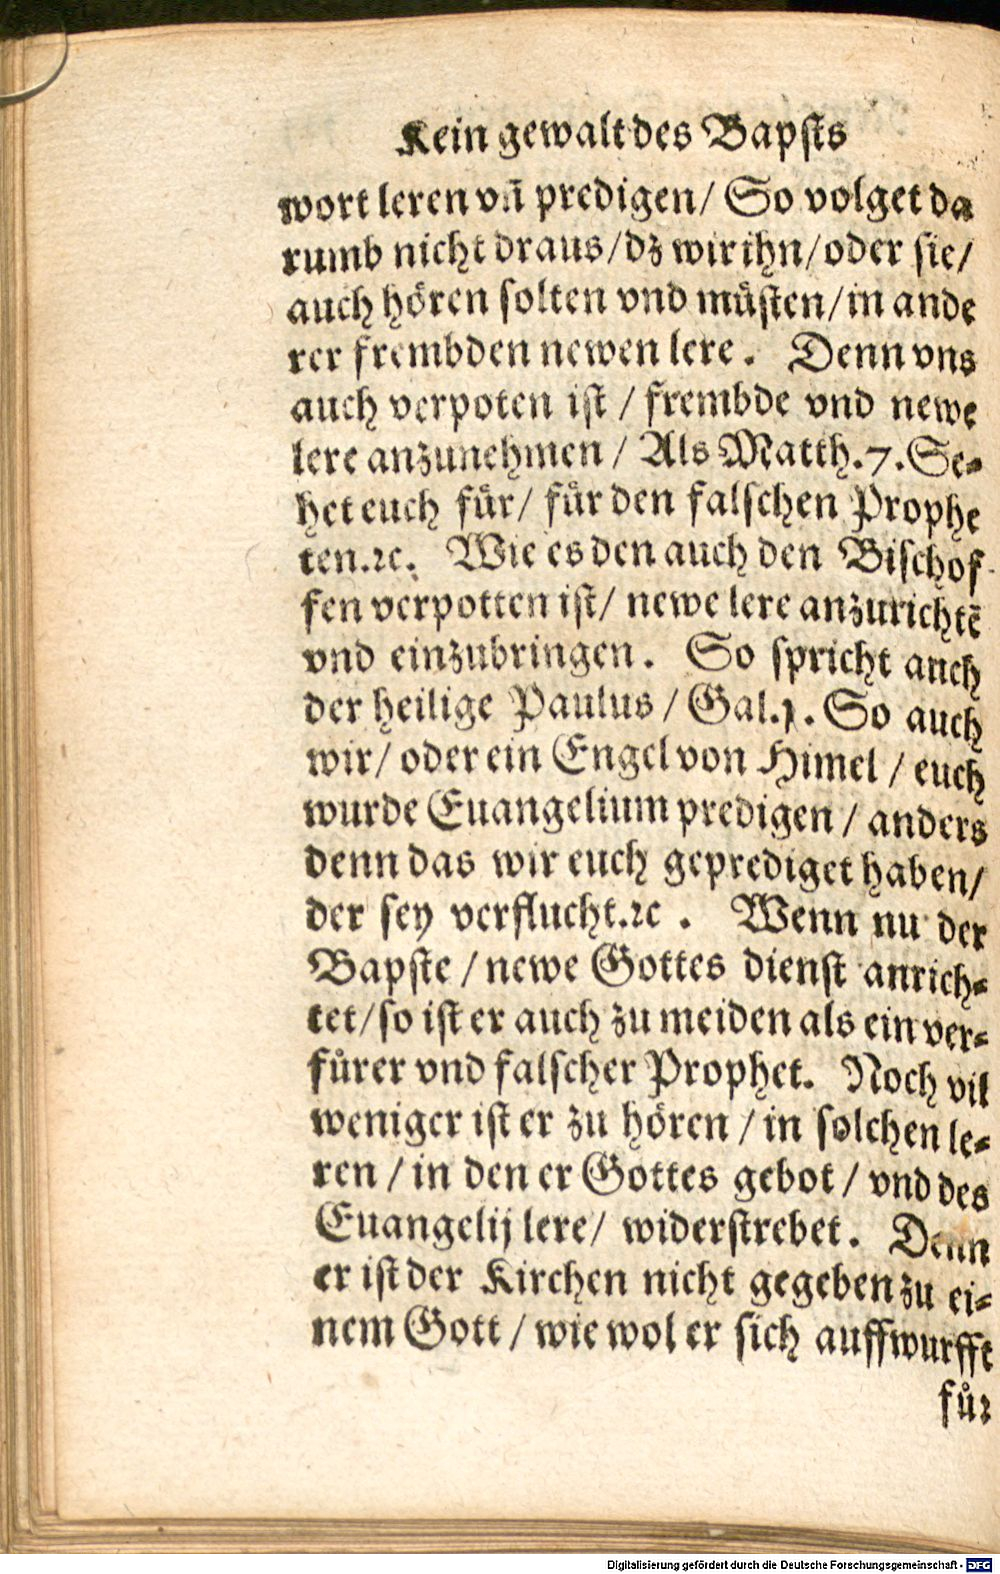 Kein gewalt des Bapsts
wort leren vñ predigen/ So volget da
rumb nicht draus/dz wir ihn/oder sie/
auch hören solten vnd müsten/in ande
rer frembden newen lere. Denn vns
auch verpoten ist / frembde vnd newe
lere anzunehmen / Als Matth.7.Se⸗
het euch für/ für den falschen Prophe
ten.ꝛc. Wie es den auch den Bischof⸗
fen verpotten ist/ newe lere anzurichtē
vnd einzubringen. So spricht auch
der heilige Paulus / Gal.1. So auch
wir/ oder ein Engel von Himel / euch
wurde Euangelium predigen / anders
denn das wir euch geprediget haben/
der sey verflucht.ꝛc . Wenn nu der
Bapste / newe Gottes dienst anrich⸗
tet/so ist er auch zu meiden als ein ver⸗
fürer vnd falscher Prophet. Noch vil
weniger ist er zu hören / in solchen le⸗
ren / in den er Gottes gebot / vnd des
Euangelij lere/ widerstrebet. Denn
er ist der Kirchen nicht gegeben zu ei⸗
nem Gott / wie wol er sich auffwurfft
für
Digitalisierung gefördert durch die Deutsche Forschungsgemeinschaft - DFG